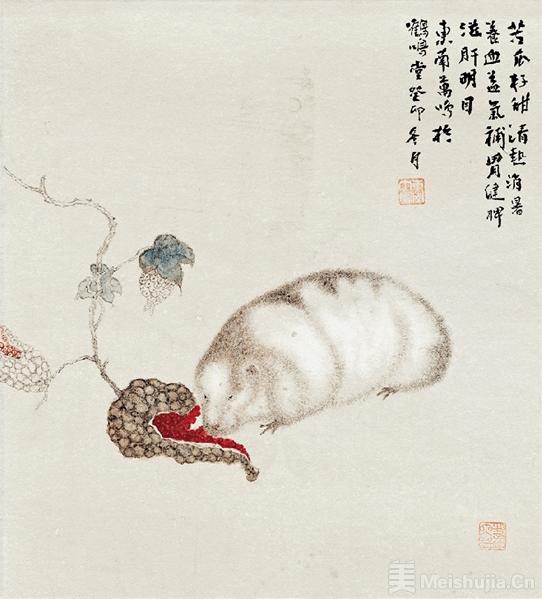 苦瓜籽甜清热消暑
养血益氣補胃健脾
滋肝明目
東南萬鳴於
鶴鳴堂癸卯冬月
美 Meishujia.Cn